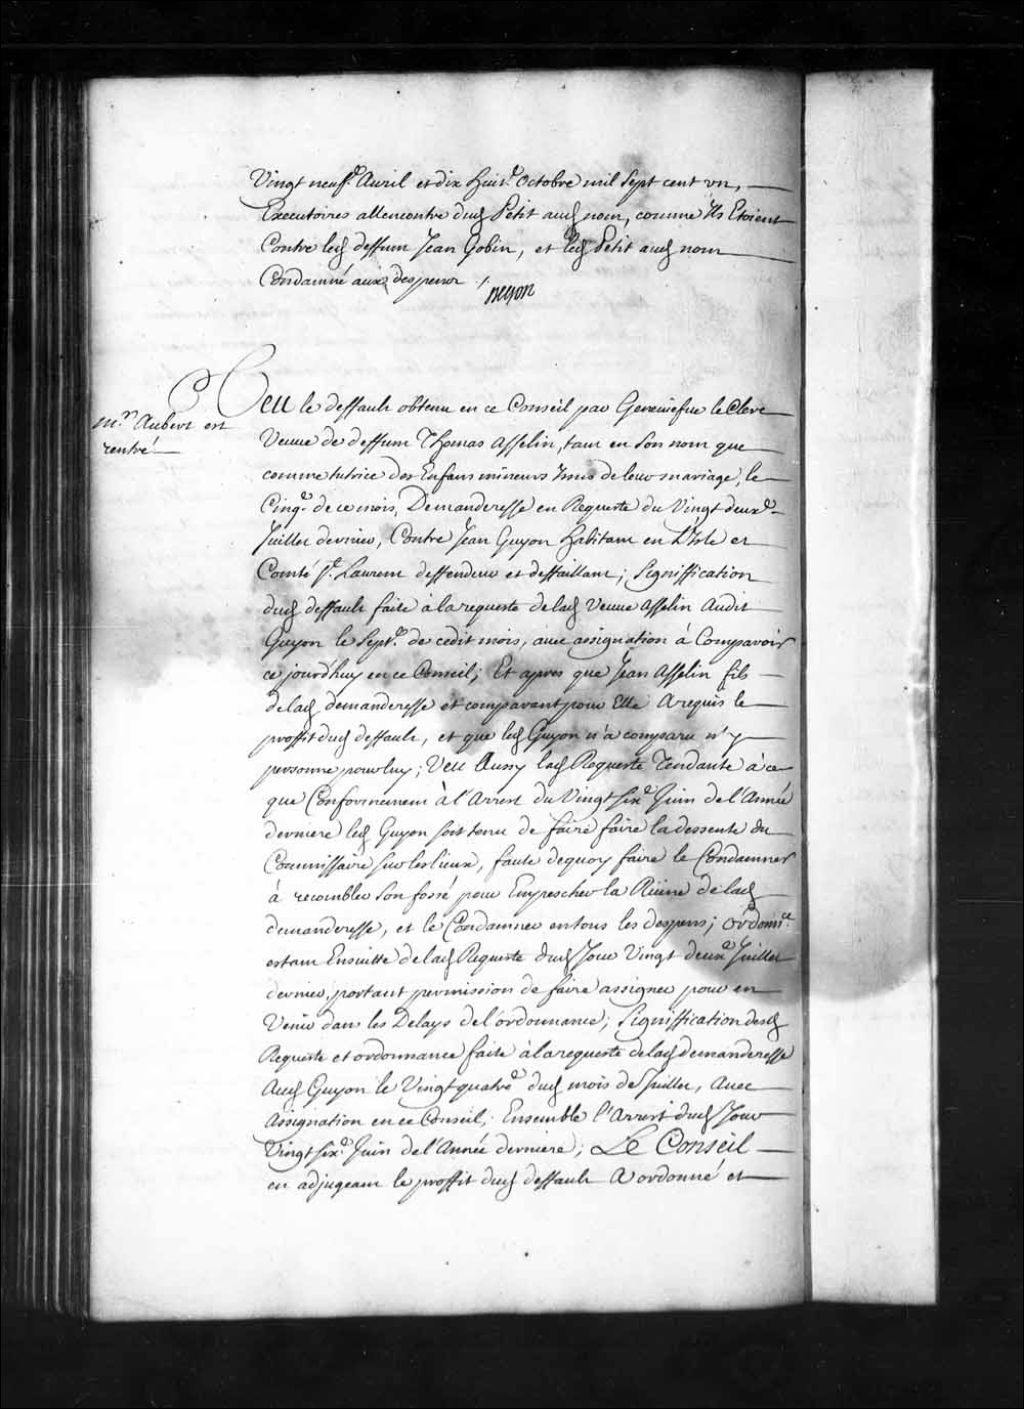 Vingt neufe. Avril et dix huite. Octobre mil sept cent un,
Executoires allencontre dud Petit aud nom, comme ils Etoient
Contre led deffunt Jean Gobin, et led Petit aud nom
Condamné aux despens /.
Veu le deffault obtenu en ce Conseil par Geneviefve le Clerc
mre. Aubert est
rentré
Veuve de deffunt Thomas Asselin, tant en son nom que
comme tutrice des Enfans mineurs Issus de leur mariage, le
Cinqe. de ce mois, Demanderesse en Requeste du Vingt deuxe.
Juillet dernier, Contre Jean Guyon habitant en L'Isle et
Comté St. Laurent deffendeur et deffaillant; Signiffication
dud deffault faite à la requeste de lad Veuve Asselin Audit
Guyon le Septe. de cedit mois, avec assignation à Comparoir
ce jourd'huy en ce Conseil; Et apres que Jean Asselin fils
de lad demanderesse et comparant pour Elle A requis le
proffit dud deffault, et que led Guyon n'a comparu n'y
personne pour luy; Veu Aussy lad Requeste Tendante à ce
que Conformement à l'Arrest du Vingt sixe. Juin de l'Année
derniere led Guyon soit tenu de faire faire la dessente du
Commissaire sur les lieux, faute de quoy faire le Condamner
à recombler son fossé pour Empescher la Rüine de lad
demanderesse, et le Condamner en tous les despens; ordonnce.
estant Ensuitte de lad Requeste dud Jour Vingt deuxe Juillet
dernier, portant permission de faire assigner pour en
Venir dans les Delays de l'ordonnance; Signiffication desd
Requeste et ordonnance faite à la requeste de lad demanderesse
Aud Guyon le Vingt quatre dud mois de Juillet, Avec
Assignation en ce Conseil; Ensemble l'Arrest dud Jour
Vingt sixe. Juin de l'Année derniere; Le Conseil
en adjugeant le proffit dud deffault A ordonné et